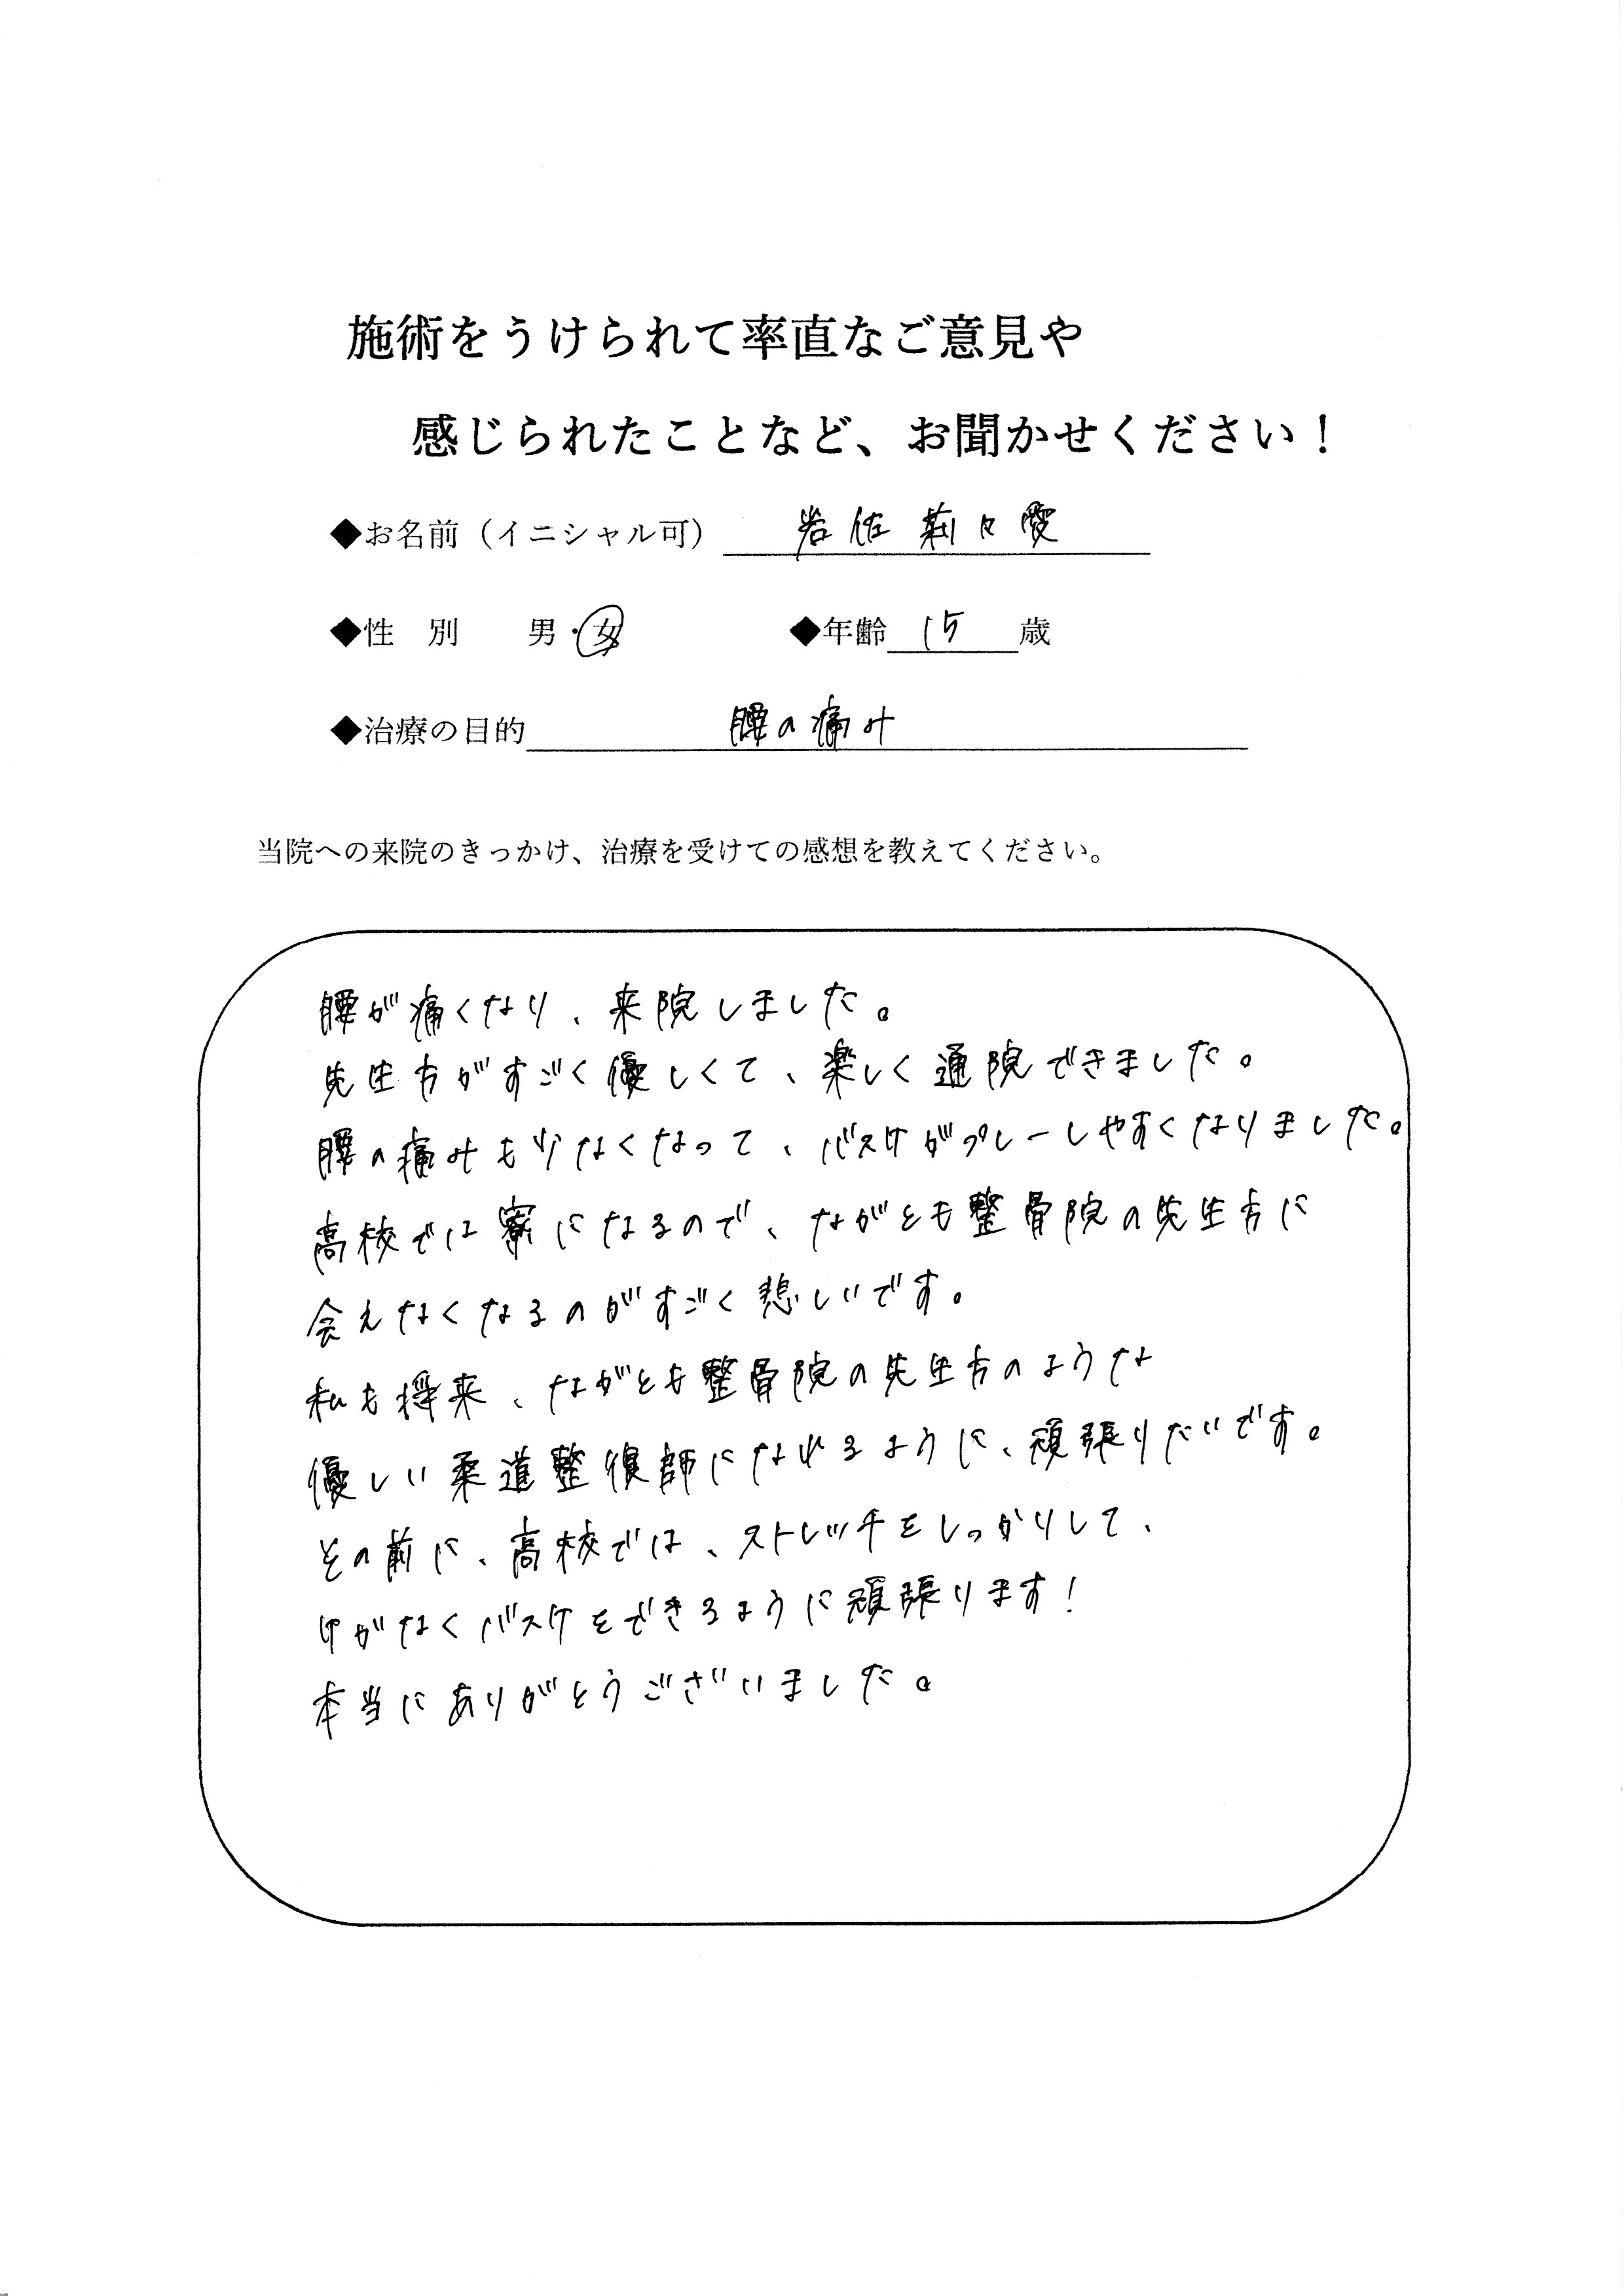 施術をうけられて率直なご意見や
感じられたことなど、お聞かせください！
◆お名前（イニシャル可） 岩佐 莉々愛
◆性 別 男・女 ◆年齢 15 歳
◆治療の目的 腰の痛み
当院への来院のきっかけ、治療を受けての感想を教えてください。
腰が痛くなり、来院しました。
先生方がすごく優しくて、楽しく通院できました。
腰の痛みも少なくなって、バスケがプレーしやすくなりました。
高校では寮になるので、ながとも整骨院の先生方に
会えなくなるのがすごく悲しいです。
私も将来、ながとも整骨院の先生方のような
優しい柔道整復師になれるように、頑張りたいです。
その前に、高校では、ストレッチをしっかりして、
けがなくバスケをできるように頑張ります！
本当にありがとうございました。